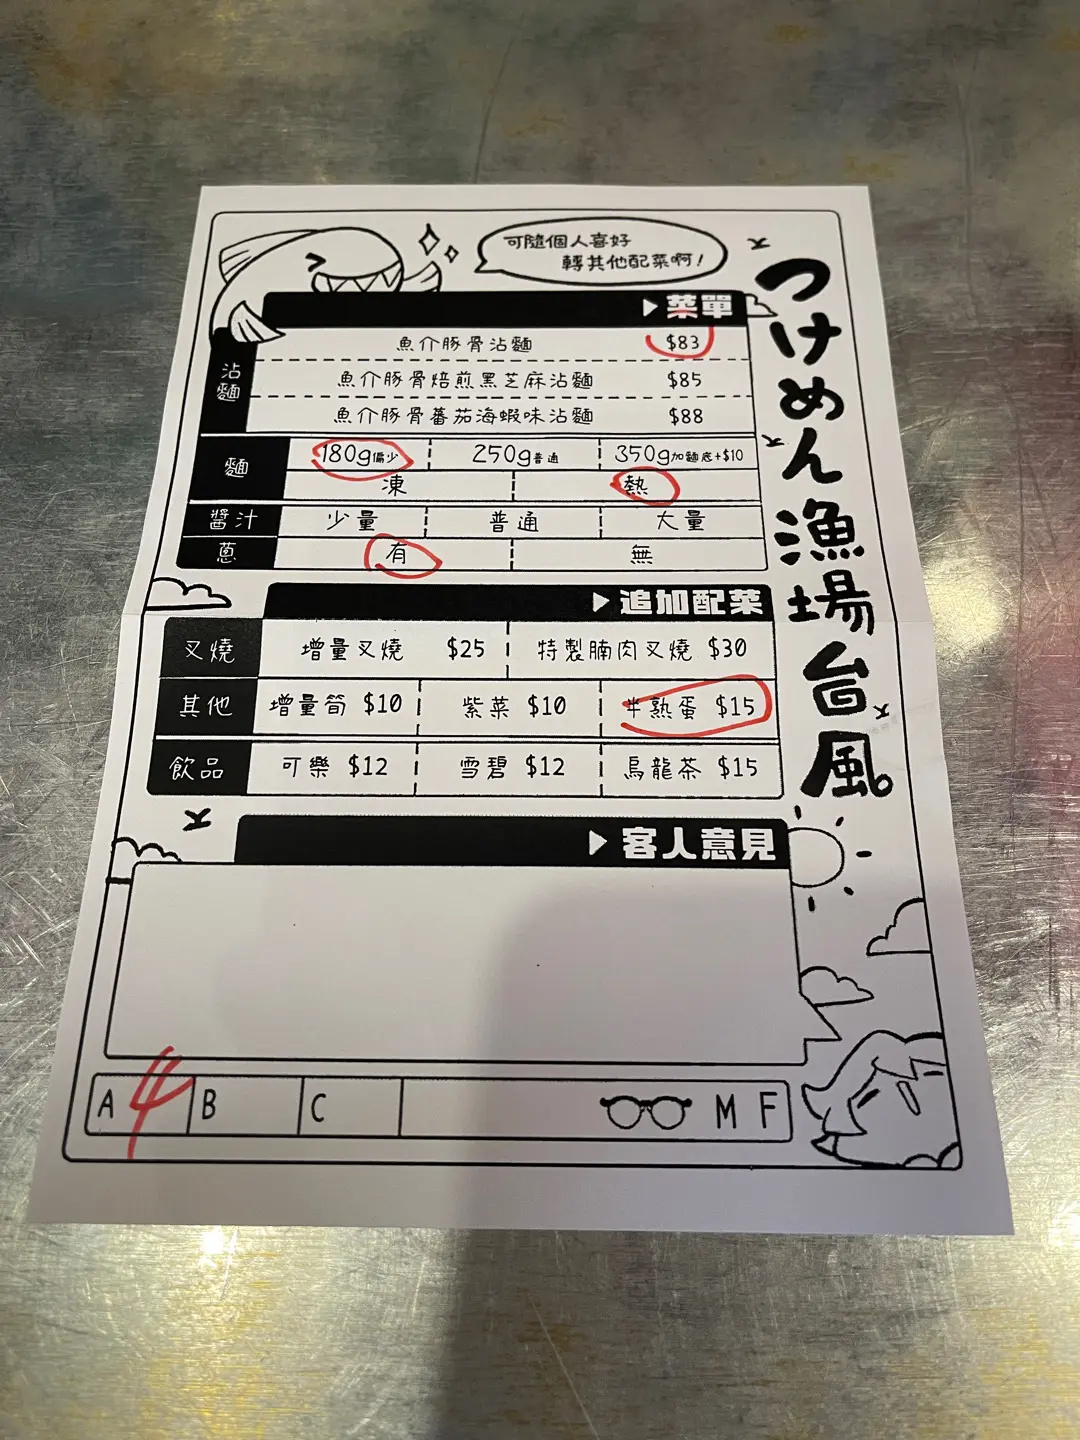 可隨個人喜好
轉其他配菜啊!
つけめん漁場台風
▶菜單
沾麵
魚介豚骨沾麵 $83
魚介豚骨焙煎黑芝麻沾麵 $85
魚介豚骨蕃茄海蝦味沾麵 $88
麵 180g偏少 250g普通 350g加麵底+$10
凍 熱
醬汁 少量 普通 大量
蔥 有 無
▶追加配菜
叉燒 增量叉燒 $25 特製腩肉叉燒 $30
其他 增量筍 $10 紫菜 $10 半熟蛋 $15
飲品 可樂 $12 雪碧 $12 烏龍茶 $15
▶客人意見
A 4 B C M F